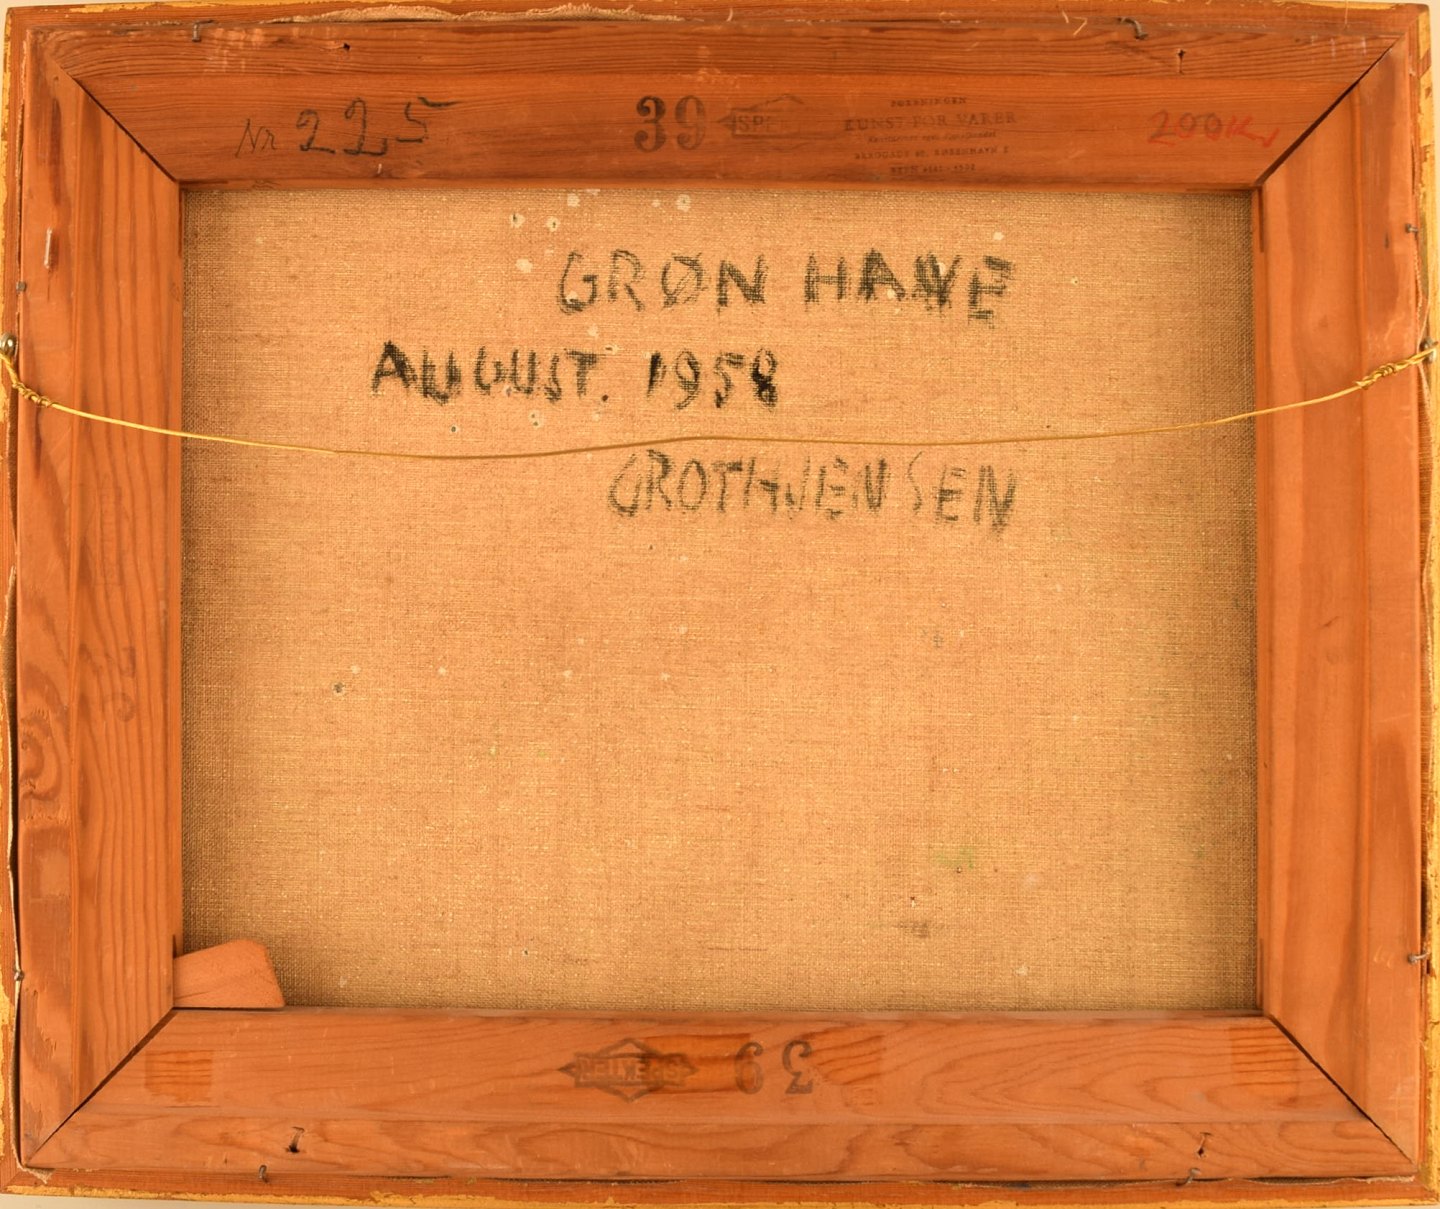 Nr 225
39
FORENINGEN
KUNST FOR VARER
200Kr
GRØN HAVE
AUGUST. 1958
GROTH JENSEN
39